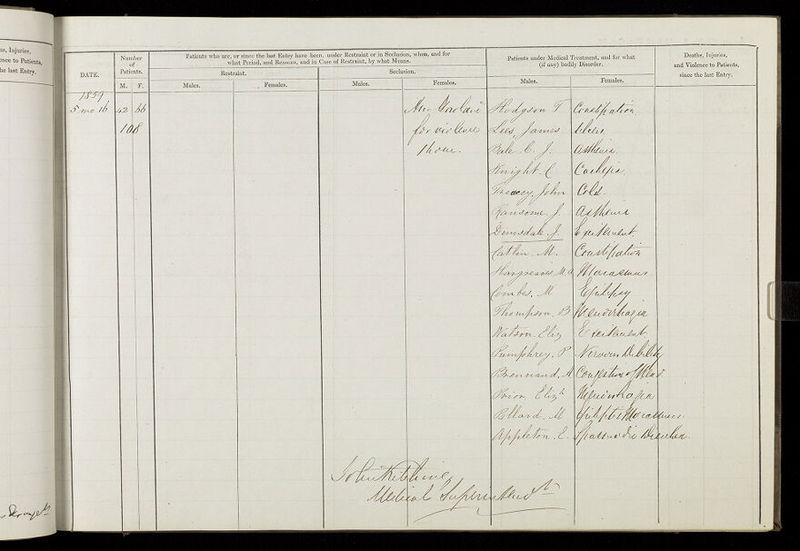 es, Injuries,
ence to Patients,
he last Entry.
DATE.
Number
of
Patients.
M. F.
Patients who are, or since the last Entry have been, under Restraint or in Seclusion, when, and for
what Period, and Reasons, and in Case of Restraint, by what Means.
Restraint.
Seclusion.
Males. Females. Males. Females.
Patients under Medical Treatment, and for what
(if any) bodily Disorder.
Males. Females.
Deaths, Injuries,
and Violence to Patients,
since the last Entry.
1859
5 mo 16 42 66 Ann Hodgson T Constipation
108 for violence Lees, James Ulcers
1 hour. C. J. Asthenia
Knight C Cachexia
John Cold.
Ransome J. Asthenia
Dimsdale J. Excitement.
Catlin M. Constipation
Hargreaves M. A Marasmus
Combes, M Epilepsy
Thompson B Menorrhagia
Watson Eliz Excitement
Pumphrey P Nervous Debility
Brennand, M Congestion of Head
Prior, Elizth Menorrhagia
Pollard M Marasmus
Appleton. E. Spasmodic
John Kitching
Medical Superintendt